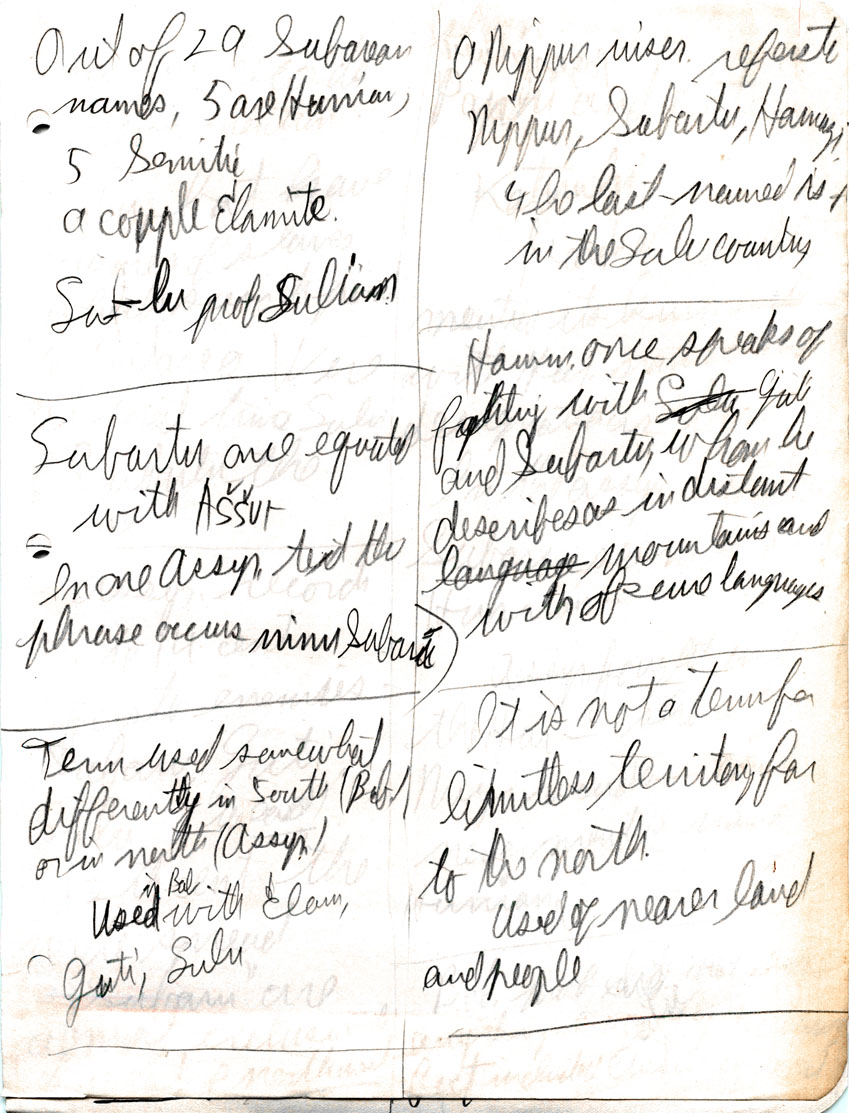 Out of 29 Subarean
names, 5 are Hurrian,
5 Semitic
a couple Elamite.
prob
Subartu are equated
with Aššur
In one Assyn. text the
phrase occurs
Term used somewhat
differently in South (Bab.)
or in north (Assyn.)
in Bab
Used with Elam,
Guti, Sulu
A Nippur inscr.
Nippur, Subartu, Hamazi
last-named is
in the country
Hamm. once speaks of
fighting with Guti
and Subartu, whom he
describes as in distant
language mountains and
with languages
It is not a term for
limitless territory far
to the north.
Used of nearer land
and people